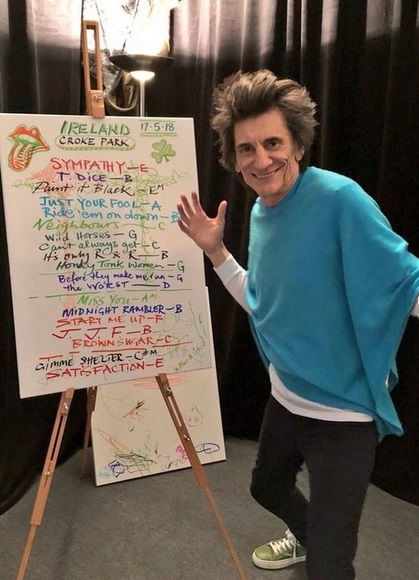 IRELAND 17·5·18
CROKE PARK
SYMPATHY — E
T. DICE — B
Paint it Black — Em
JUST YOUR FOOL — A
Ride 'em on down — B
Neighbours — C
Wild Horses — G
Can't always get — C
It's only R & R — B
Honky Tonk Women — G
Before they make me run — G
the WORST — D
MISS YOU — Am
MIDNIGHT RAMBLER — B
START ME UP — F
J. J. F — B
BROWN SUGAR — C
GIMME SHELTER — C#m
SATISFACTION — E